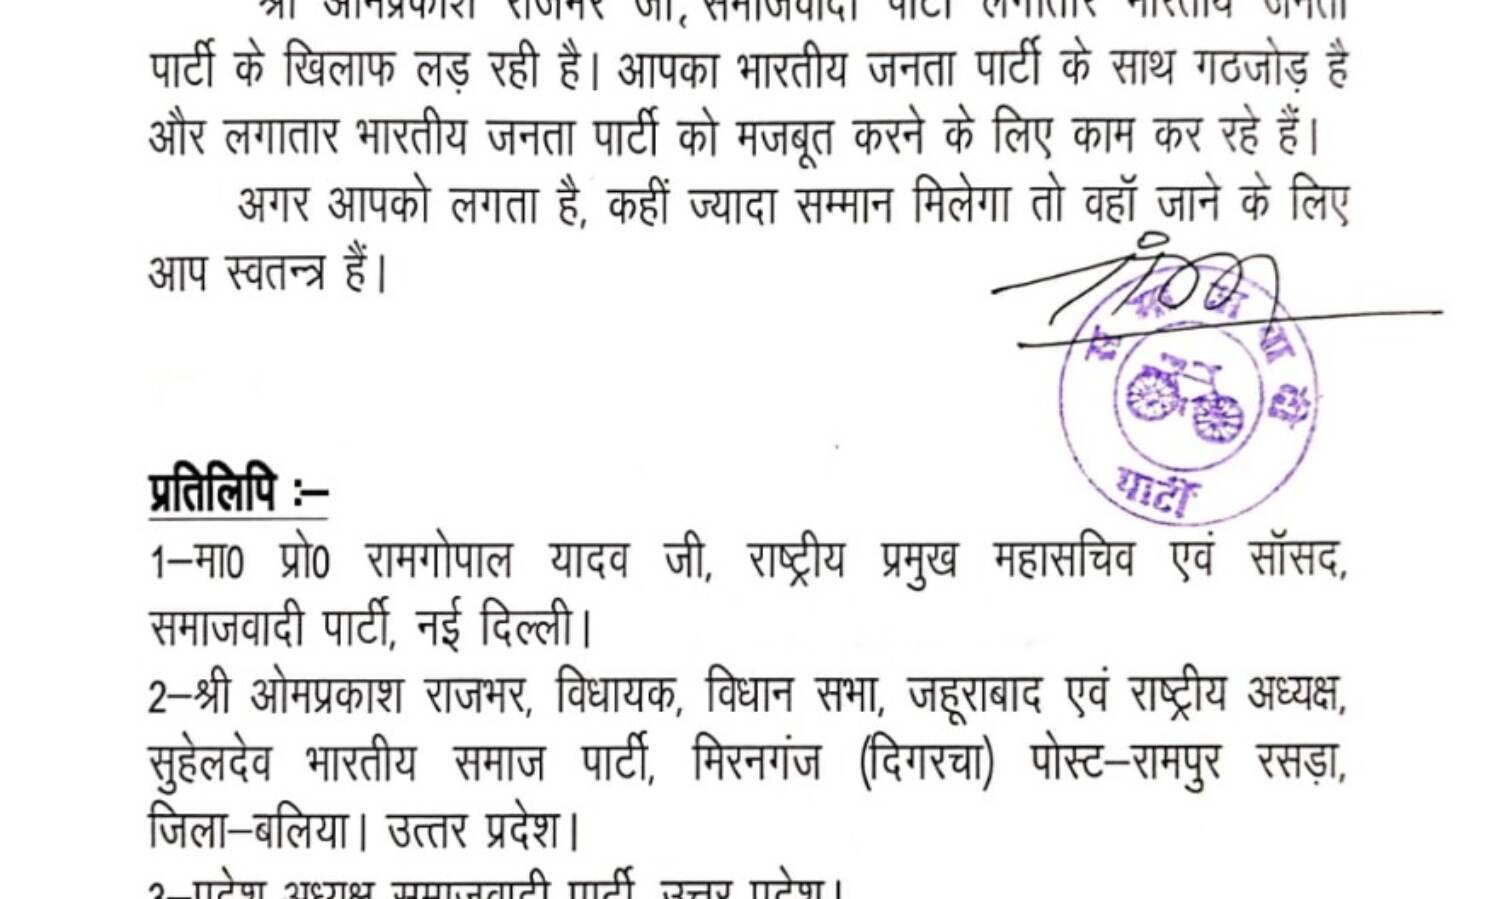 श्री ओमप्रकाश राजभर जी, समाजवादी पार्टी लगातार भारतीय जनता
पार्टी के खिलाफ लड़ रही है। आपका भारतीय जनता पार्टी के साथ गठजोड़ है
और लगातार भारतीय जनता पार्टी को मजबूत करने के लिए काम कर रहे हैं।
अगर आपको लगता है, कहीं ज्यादा सम्मान मिलेगा तो वहॉ जाने के लिए
आप स्वतन्त्र हैं।
स मा ज वा दी
पार्टी
प्रतिलिपि :–
1–मा0 प्रो0 रामगोपाल यादव जी, राष्ट्रीय प्रमुख महासचिव एवं सॉसद,
समाजवादी पार्टी, नई दिल्ली।
2–श्री ओमप्रकाश राजभर, विधायक, विधान सभा, जहूराबाद एवं राष्ट्रीय अध्यक्ष,
सुहेलदेव भारतीय समाज पार्टी, मिरनगंज (दिगरचा) पोस्ट–रामपुर रसड़ा,
जिला–बलिया। उत्तर प्रदेश।
3–प्रदेश अध्यक्ष समाजवादी पार्टी, उत्तर प्रदेश।